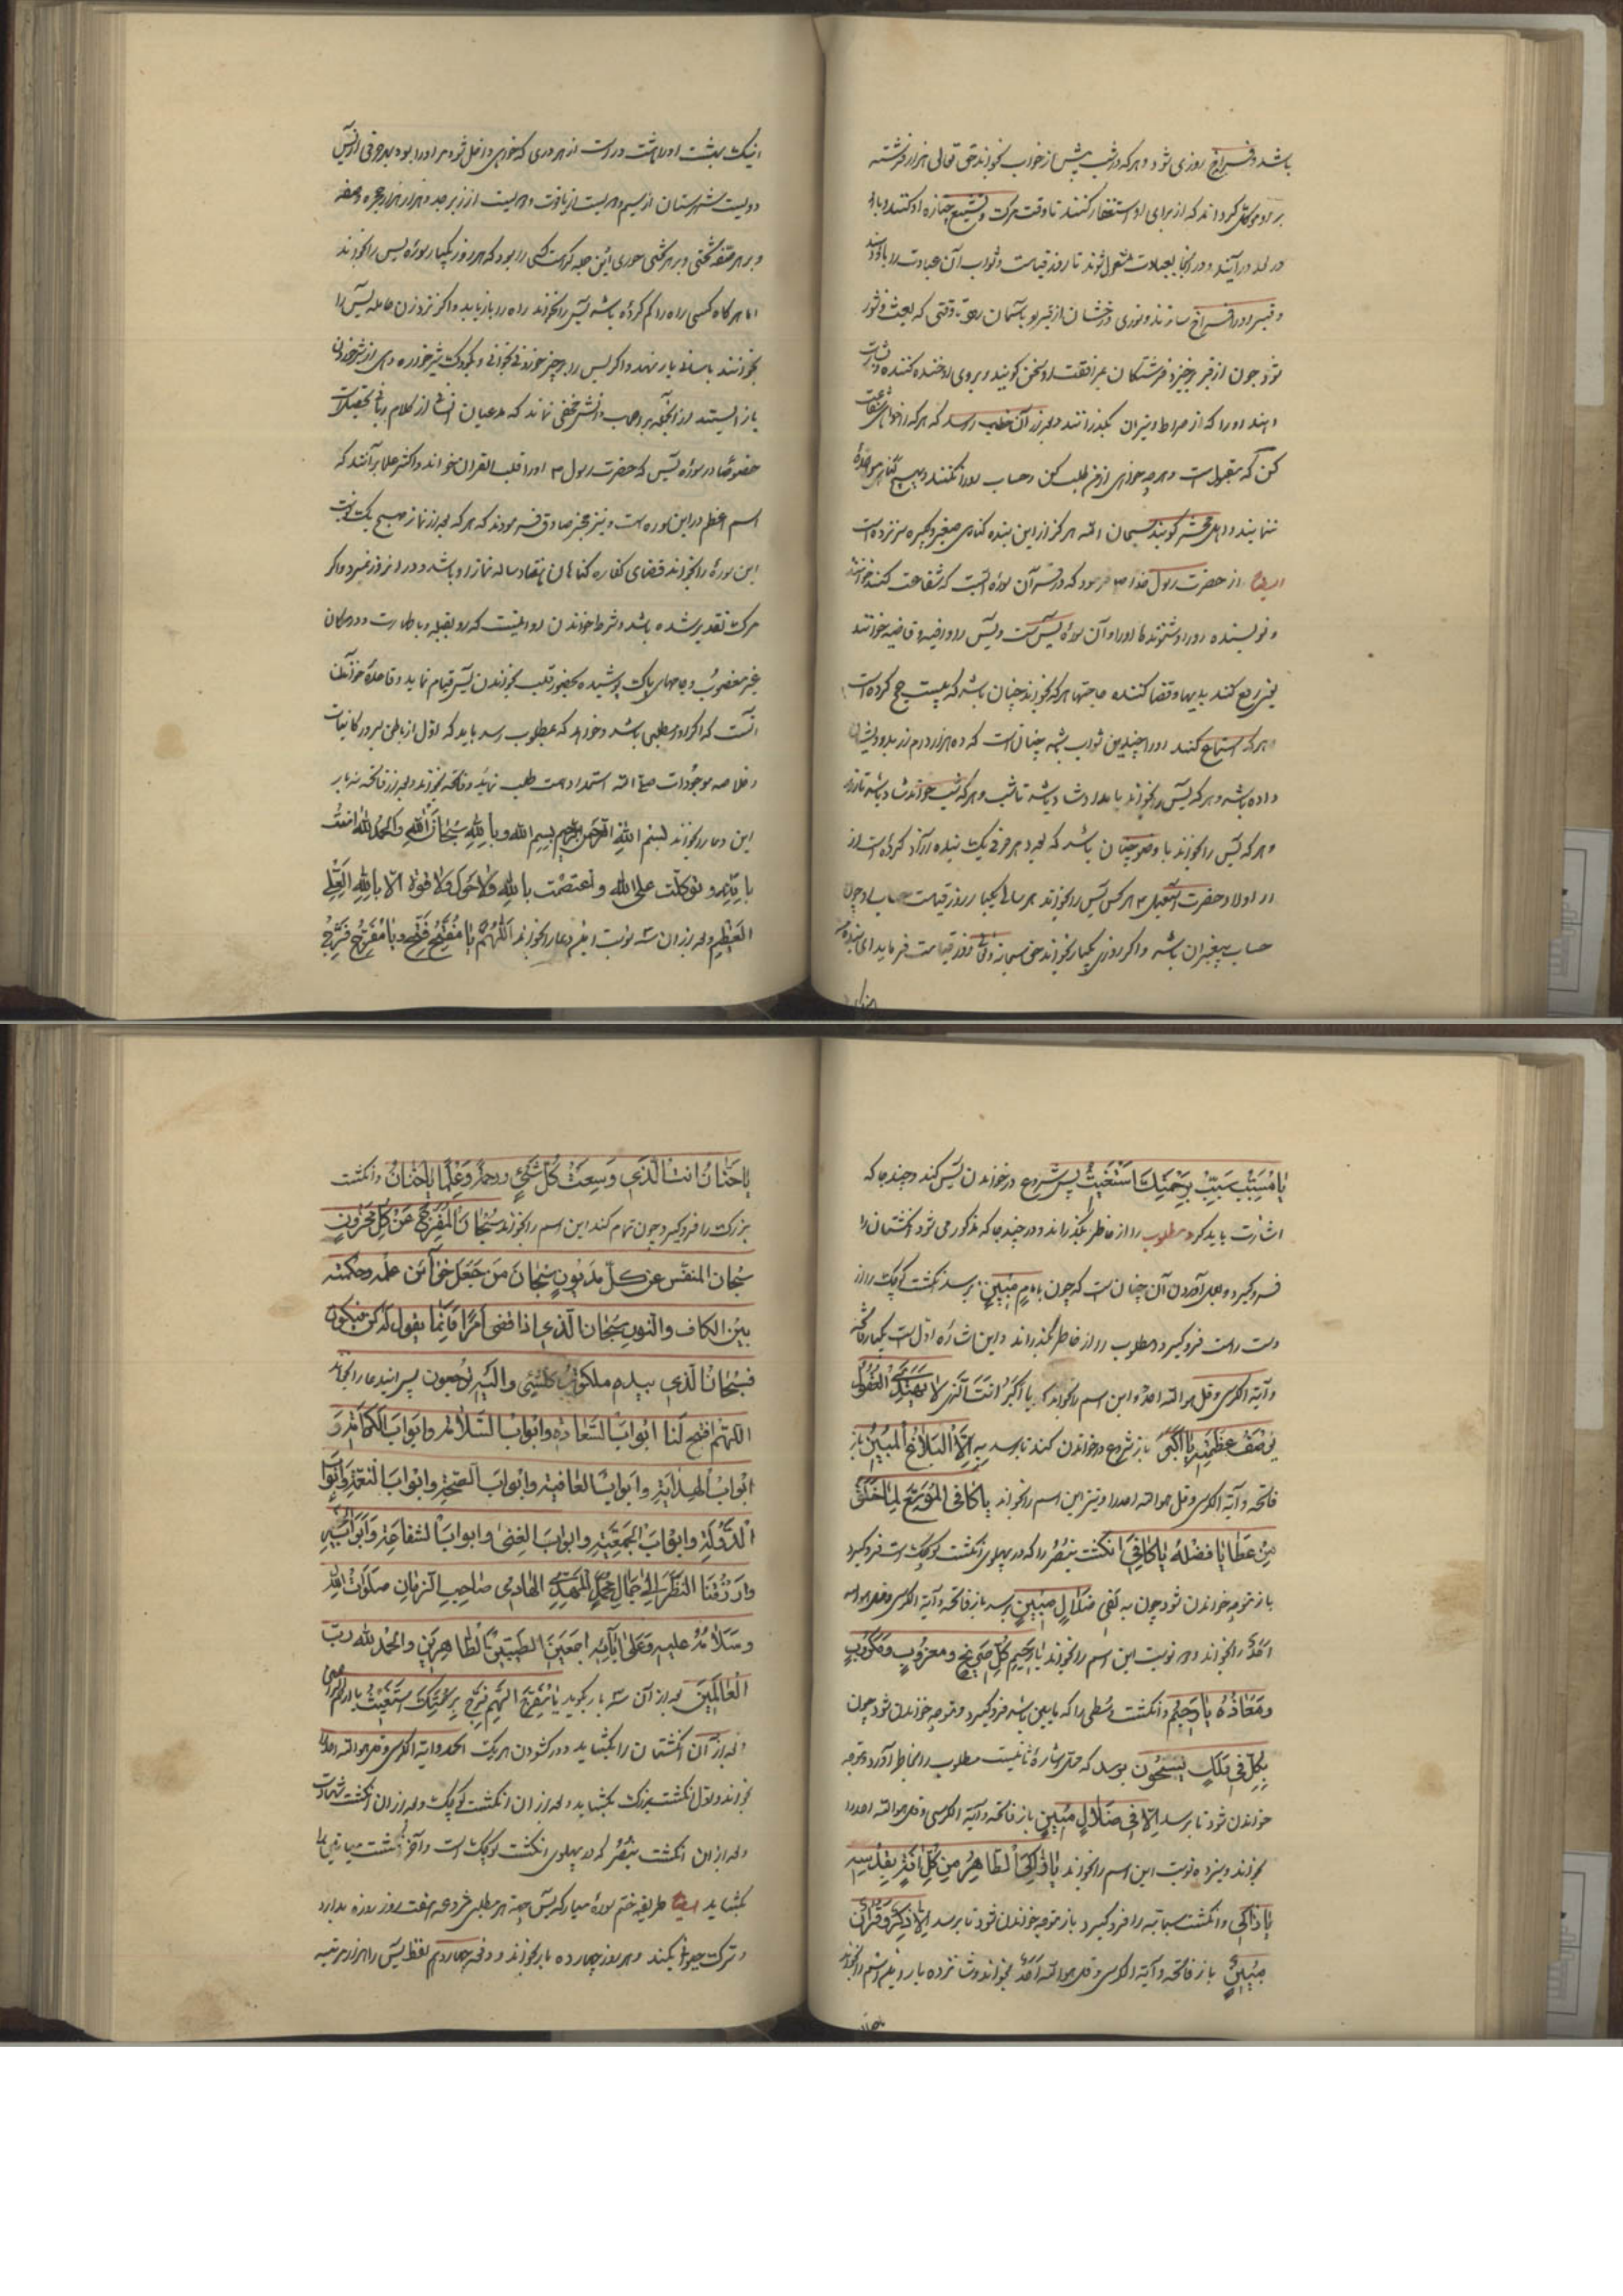 باشد و فراخ روزی شود و هر که در شب پیش از خواب بخواند حق تعالی هزار فرشته
بر او موکل کرداند که از برای او استغفار کنند تا وقت مرک و تشییع جنازه او کنند و با او
در لحد در آیند و در آنجا بعبادت مشغول شوند تا روز قیامت و ثواب آن عبادت را باو دهند
و قبر او را فراخ سازند و نوری درخشان از قبر او بآسمان رود تا وقتی که بعث و نشور
شود چون از قبر برخیزد فرشتکان بمرافقت او سخن کویند و بروی او خنده کنند و بشارت
دهند او را که از صراط و میزان بکذرانند و بعد از آن خطاب رسد که هر که را خواهی شفاعت
کن که مقبول است و هر چه خواهی از من طلب کن و حساب او را نکنند و بهیچ کناهی مؤاخذه
ننمایند و اهل محشر کویند سبحان الله هرکز از این بنده کناهی صغیر و کبیره سر نزده است
ایضا از حضرت رسول خدا ص فرمود که در قرآن سوره ایست که شفاعت کند خواننده
و نویسنده را و شنونده را و آن سوره یس است و یس را دافعه و قاضیه خوانند
یعنی دفع کنند بدیها و قضا کننده حاجتها هر که بخواند چنان باشد که بیست حج کرده است
هر که استماع کند او را چندین ثواب باشد چنان است که ده هزار درم زر بدرویشان
داده باشد و هر که یس را بخواند بامداد شاد باشد تا شب و هر که شب خواند شاد باشد تا روز
و هر که یس را بخواند با وضو چنان باشد که بعدد هر حرفی یک بنده آزاد کرده است از
از اولاد حضرت اسمعیل ع هر کس یس را بخواند هر سالی یکبار روز قیامت حساب او چون
حساب پیغمبران باشد و اکر روزی یکبار بخواند حق سبحانه و تعالی روز قیامت فرماید ای بنده من
اینک بهشت او را هشت در است از هر دری که خواهی داخل شو و مر او را بود بهر حرفی از یس
دویست شهرستان از سیم و دویست از یاقوت و دویست از زبرجد و هزار هزار حجره و صفه
و بر هر صفه تختی و بر هر تختی حوری این جمله کرامت کسی را بود که هر روز یکبار سوره یس را بخواند
اما هر کاه کسی راه را کم کرده باشد یس را بخواند راه را باز یابد و اکر نزد زن حامله یس را
بخوانند باسانی بار نهد و اکر یس را بر چیز خوردنی بخوانی و بکودک شیرخواره دهی از شیر خوردن
باز ایستد از آنجمله بر اصحاب دانش مخفی نماند که
خصوصا در سوره یس که حضرت رسول ص او را قلب القران خواند و اکثر علما برآنند که
اسم اعظم در این سوره است و نیز مخبر صادق فرمودند که هر که بعد از نماز صبح یک نوبت
این سوره را بخواند قضای کفاره کناهان هفتاد ساله نماز او باشد و در انروز نمیرد و اکر
مرک تقدیر شده باشد و شرط خواندن او اینست که رو بقبله و با طهارت و در مکان
غیر مغصوب و جامهای پاک پوشیده بحضور قلب بخواندن یس قیام نماید و قاعده خواندن
آنست که اکر او را مطلبی باشد و خواهد که بمطلوب رسد باید که اول از باطن سرور کاینات
و خلاصه موجودات صلی الله استمداد همت طلب نماید و فاتحه بخواند و بعد از فاتحه سه بار
این دعا را بخواند بسم الله الرحمن الرحیم بسم الله و بالله سبحان الله والحمدلله امنت
بالله و توکلت علی الله و اعتصمت بالله ولا حول ولا قوة الا بالله العلی
العظیم و بعد از ان سه نوبت اینرا دعا را بخواند اللهم یا مفتح فتح و یا مفرج فرج
یا مسبب سبب برحمتک استغیث پس شروع در خواندن یس کند و چند جا که
اشارت باید کرد مطلوب را از خاطر بکذراند و در چند جا که مذکور می شود انکشتان را
فرو کیرد و بعمل آوردن آن چنان است که چون بامام مبین برسد انکشت کوچک را از
دست راست فرو کیرد و مطلوب را از خاطر بکذراند و این اشاره اول است یکبار فاتحه
و آیة الکرسی و قل هو الله احد و این اسم را بخواند یا اکبر انت الذی لا تهتدی العقول
لوصف عظمته یا اکبر باز شروع در خواندن کند تا برسد به الا البلاغ المبین باز
فاتحه و آیة الکرسی و قل هو الله احد را و نیز این اسم را بخواند یا کافی الموسع لما خلق
من عطایا فضله یا کافی انکشت بنصر را که در پهلوی انکشت کوچک است فرو کیرد
باز متوجه خواندن شود چون به لفی ضلال مبین برسد باز فاتحه و آیة الکرسی و قل هو الله
احد را بخواند و ده نوبت این اسم را بخواند یا رحیم کل صریخ و مکروب
و معاذه یا رحیم و انکشت وسطی را که مابین باشد فرو کیرد و متوجه خواندن شود چون
بکل فی فلک یسبحون برسد که محل اشاره ثانیست مطلوب را بخاطر آورد و متوجه
خواندن شود تا برسد الا فی ضلال مبین باز فاتحه و آیة الکرسی و قل هو الله احد را
بخواند و نیزده نوبت این اسم را بخواند یا زاکی الطاهر من کل آفة بقدسه
یا زاکی و انکشت سبابه را فرو کیرد باز متوجه خواندن شود تا برسد الا ذکر و قرآن
مبین باز فاتحه و آیة الکرسی و قل هو الله احد بخواند و شانزده بار
یا حنان انت الذی وسعت کل شیء رحمة و علما یا حنان و انکشت
بزرک را فرو کیرد و چون تمام کند این اسم را بخواند سبحان المفرج عن کل محزون
سبحان المنفس عن کل مدیون سبحان من جعل خزائن علمه و حکمته
بین الکاف والنون سبحان الذی اذا قضی امرا فانما یقول له کن فیکون
فسبحان الذی بیده ملکوت کلشیء والیه ترجعون پس ایندعا را بخواند
اللهم افتح لنا ابواب السعادة وابواب السلامة وابواب الکرامة و
ابواب الهدایة وابواب العافیة وابواب الصحة وابواب النعمة وابواب
الدولة وابواب الجمعیة وابواب الغنی وابواب الشفاعة و
وارزقنا النظر الی جمال محمد المهدی الهادی صاحب الزمان صلوات الله
وسلامه علیه وعلی آبائه اجمعین الطیبین الطاهرین والحمد لله رب
العالمین بعد از آن سه بار بکوید یا مفتح اللهم فرج برحمتک استغیث یا ارحم الراحمین
و بعد از آن انکشتان را بکشاید و در کشودن هر یک الحمد و آیة الکرسی و قل هو الله احد را
بخواند و اول انکشت بزرک بکشاید و بعد از ان انکشت کوچک و بعد از ان انکشت شهادت
و بعد از ان انکشت بنصر که در پهلوی انکشت کوچک است و آخر انکشت میانین را
بکشاید ایضا طریقه ختم سوره مبارکه یس بجهة هر مطلبی مشروعه هفت روز روزه بدارد
و ترک حیوانی کند و هر روز چهارده بار بخواند و در دفعه چهاردهم لفظ یس را هزار مرتبه